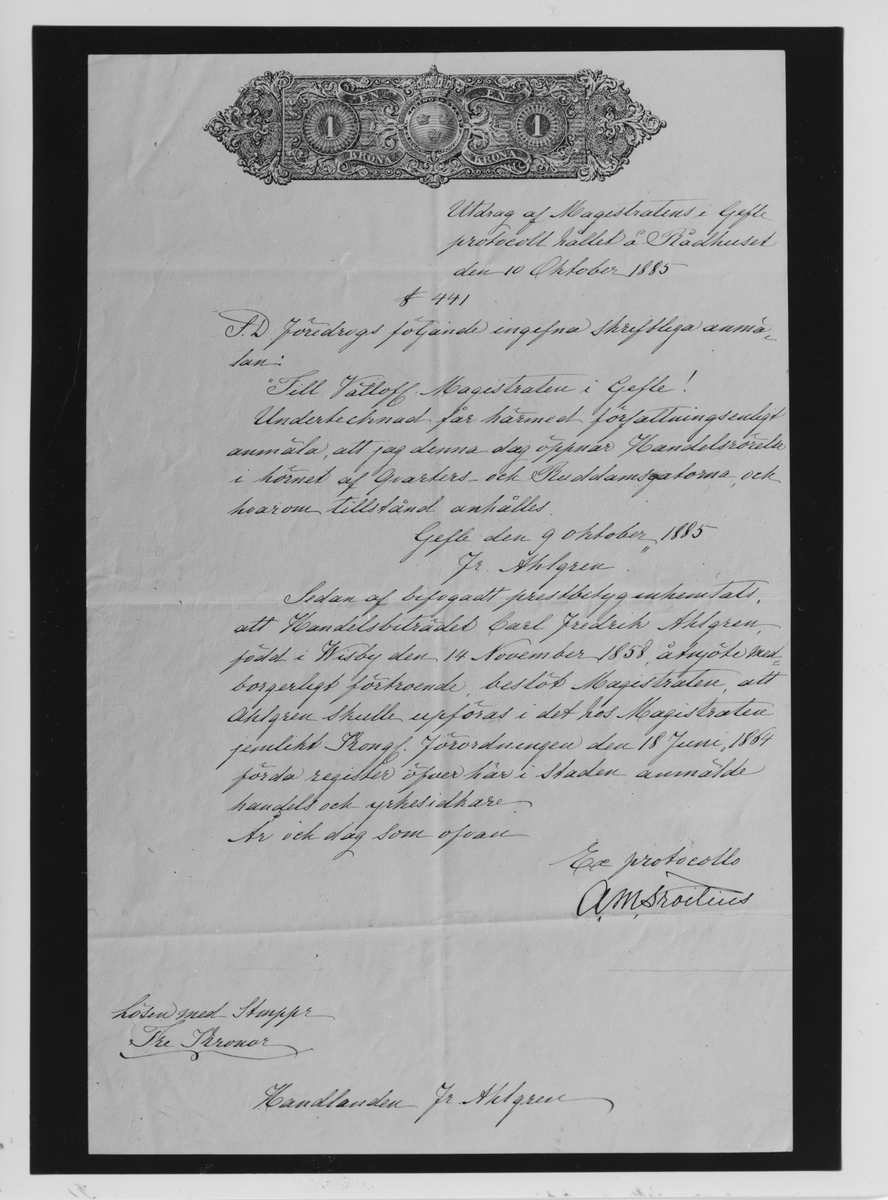 EN EN
1 1
KRONA KRONA
Utdrag af Magistratens i Gefle
protocoll hållet å Rådhuset
den 10 Oktober 1885
§ 441
S.D. Föredrogs följande ingefna skriftliga anmä-
lan:
"Till Vällofl. Magistraten i Gefle!
Undertecknad får härmed författningsenligt
anmäla, att jag denna dag öppnar Handelsrörelse
i hörnet af Qvarters- och Ruddamsgatorna, och
hvarom tillstånd anhålles.
Gefle den 9 oktober 1885
Fr. Ahlgren."
Sedan af bifogadt prestbetyg inhemtats,
att Handelsbiträdet Carl Fredrik Ahlgren,
född i Wisby den 14 November 1858, åtnjöte med-
borgerligt förtroende, beslöt Magistraten, att
Ahlgren skulle upföras i det hos Magistraten
jemlikt Kongl. Förordningen den 18 Juni 1864
förda register öfver här i staden anmälde
handels och yrkesidkare.
År och dag som ofvan
Ex protocollo
A.M. Troilius
Lösen med Stappr
Tre Kronor
Handlanden Fr. Ahlgren